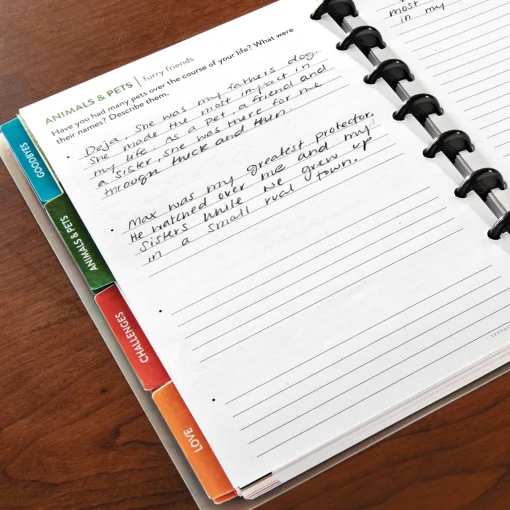 ANIMALS & PETS | furry friends
Have you had many pets over the course of your life? What were
their names? Describe them.
• Deja. She was my fathers dog.
She made the most impact in
my life as a pet, a friend and
a sister. She was there for me
through thick and thin.
• Max was my greatest protector.
He watched over me and my
sisters while we grew up
in a small rual town.
•
•
most
in my
GOODBYES
ANIMALS & PETS
CHALLENGES
LOVE